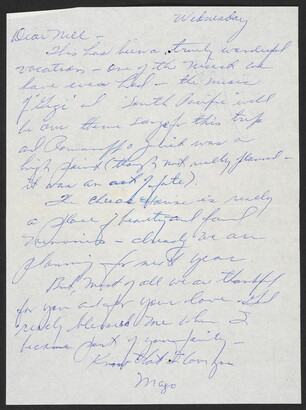 Wednesday
Dear Nell -
This has been a truly wonderful
vacation - one of the nicest we
have ever had - the music
of "Gigi" and "South Pacific" will
be our theme songs for this trip
and was a
high point (though not really planned -
it was an act of fate).
The house is really
a place of beauty and fond
memories - already we are
planning for next year
But, most of all we are thankful
for you and for your love - God
really blessed me when I
became part of your family -
Know that I love you
Mago